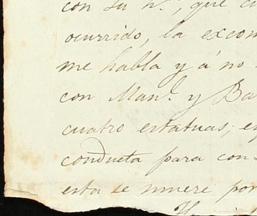 con su n.º, que
ocurrido, la excom
me habla y á no
con Man.l y Ba
cuatro estatuas; e
conducta para con
esta se muere por